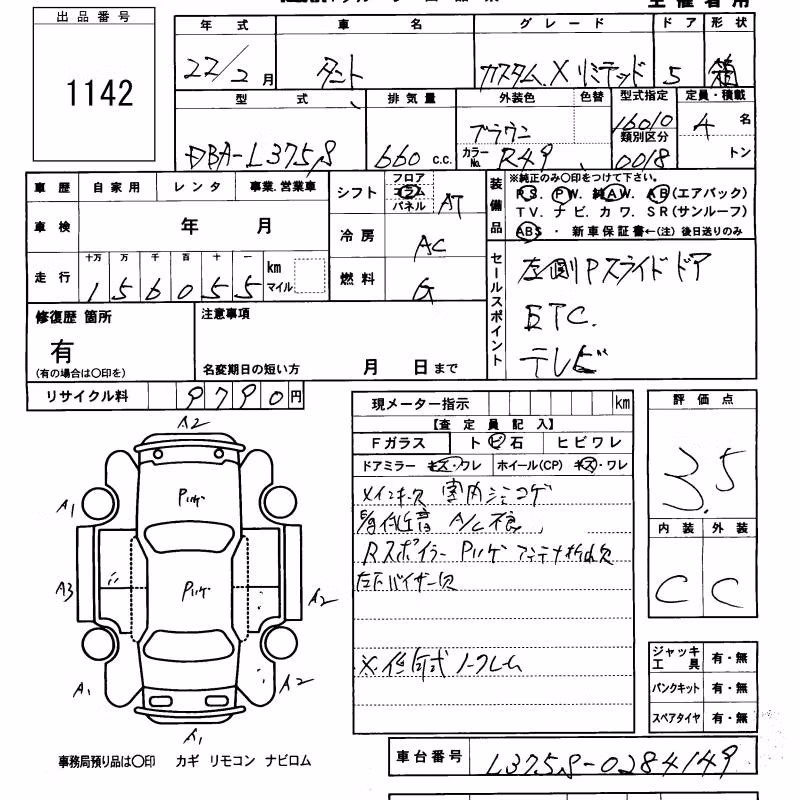 出品番号
1142
年式 車名 グレード ドア 形状
22/2月 タント カスタム X リミテッド 5 箱
型式 排気量 外装色 色替 型式指定 定員・積載
DBA-L375S 660 c.c. ブラウン 16010 4 名
カラーNo. R49 類別区分 0018 トン
車歴 自家用 レンタ 事業.営業車
車検 年 月
走行 十万 万 千 百 十 一 km マイル
156055
シフト フロア コラム パネル AT
冷房 AC
燃料 G
装備品
※純正のみ〇印をつけて下さい。
P.S. P.W. 純A.W. A.B(エアバック)
T V. ナ ビ. カ ワ. S R(サンルーフ)
ABS ・ 新車保証書←(注) 後日送りのみ
セールスポイント
左側Pスライドドア
ETC.
テレビ
修復歴 箇所
有
(有の場合は〇印を)
注意事項
名変期日の短い方 月 日まで
リサイクル料 9790円
現メーター指示 km
【査定員記入】
Fガラス トビ石 ヒビワレ
ドアミラー キズ・ワレ ホイール(CP) キズ・ワレ
メインキー欠 室内シミコゲ
A/C不良
Rスポイラー Pハゲ アンテナ折れ欠
左下バイザー欠
ノークレーム
評価点
3.5
内装 外装
C C
ジャッキ工具 有・無
パンクキット 有・無
スペアタイヤ 有・無
A2
Pハゲ
A1
Pハゲ
A3
A2
A1
A2
A1
事務局預り品は〇印 カギ リモコン ナビロム
車台番号 L375S-0284149